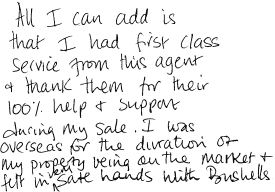 All I can add is
that I had first class
service from this agent
& thank them for their
100% help & support
during my sale. I was
overseas for the duration of
my property being on the market &
felt in very safe hands with Bushells